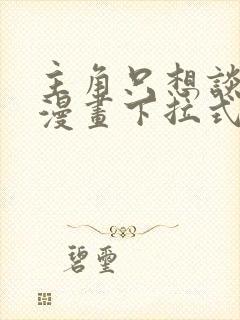 主角只想談
漫畫下拉式
碧璽